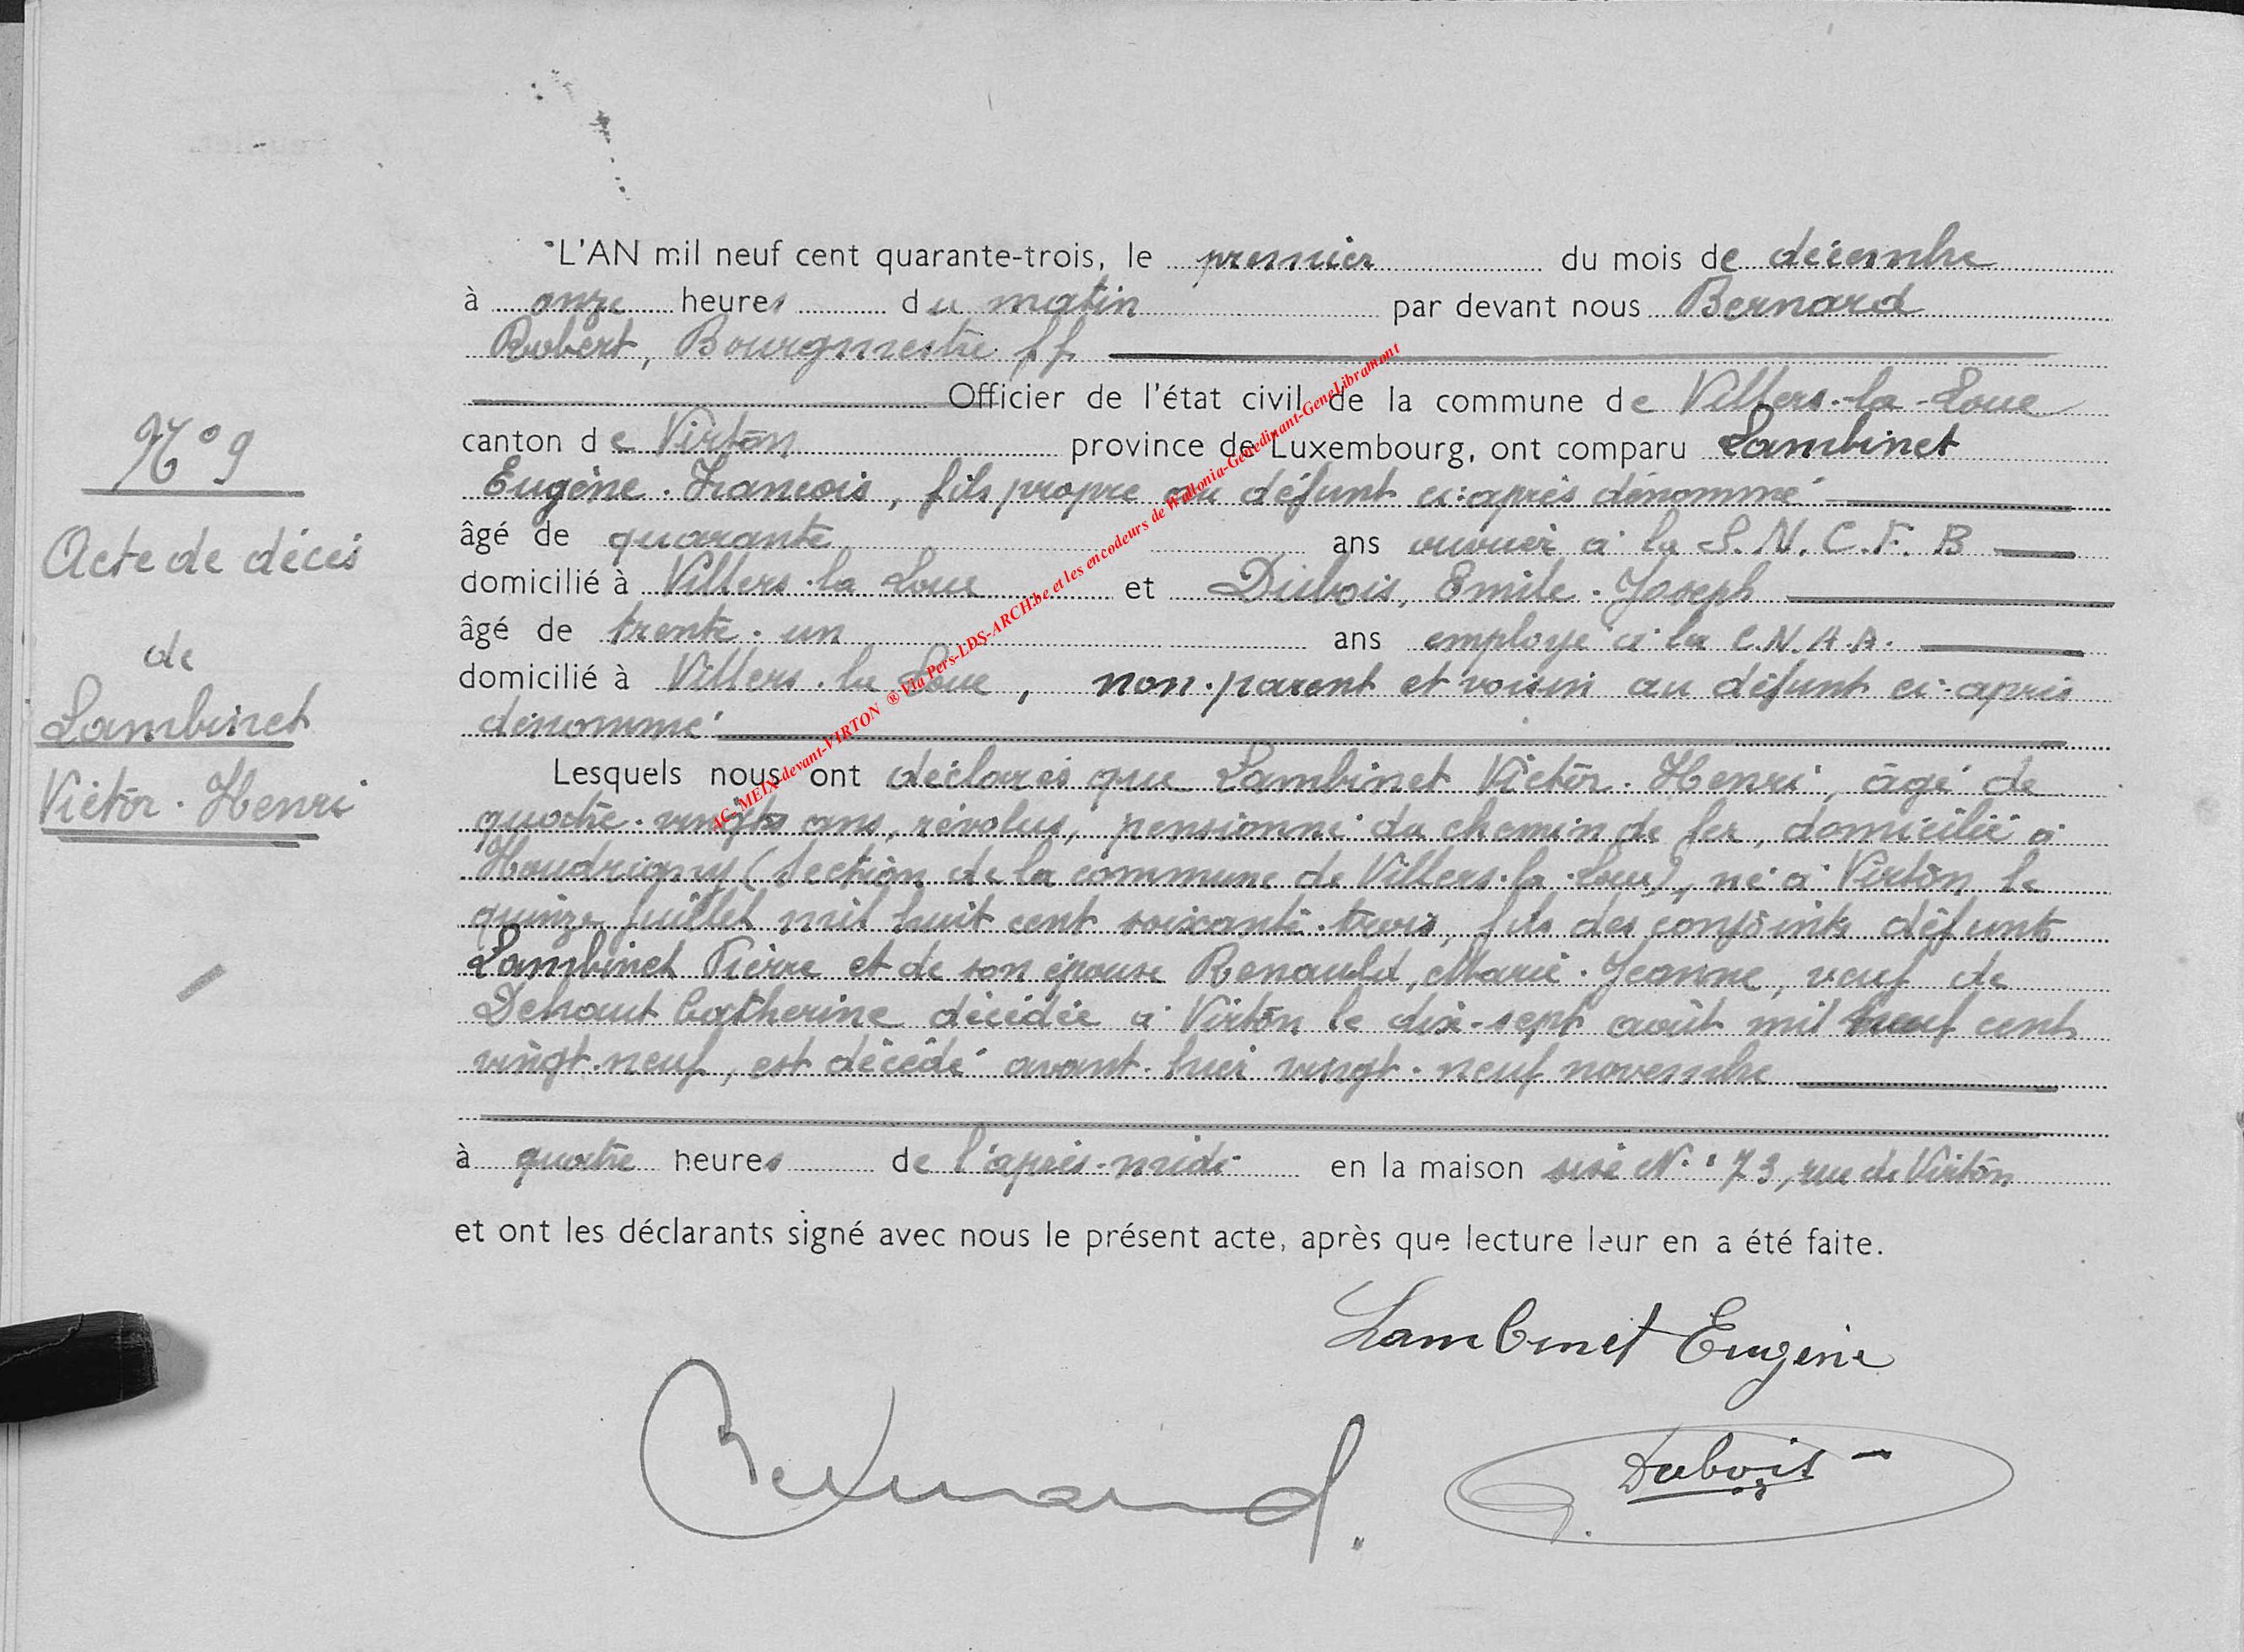 N° 9
Acte de décès
de
Lambinet
Victor-Henri
L'AN mil neuf cent quarante-trois, le premier du mois de décembre
à onze heures du matin par devant nous Bernard
Robert, Bourgmestre ff
Officier de l'état civil de la commune de Villers-la-Loue
canton de Virton province de Luxembourg, ont comparu Lambinet
Eugène-Francois, fils propre au défunt ci-après dénommé
âgé de quarante ans ouvrier à la S.N.C.F.B
domicilié à Villers-la Loue et Dubois, Emile-Joseph
âgé de trente-un ans employé à la C.N.A.A.
domicilié à Villers-la Loue, non-parent et voisin au défunt ci-après
dénommé
Lesquels nous ont déclarés que Lambinet Victor-Henri, âgé de
quatre-vingts ans, révolus, pensionné du chemin de fer, domicilié à
Houdrigny (section de la commune de Villers-la-Loue), né à Virton le
quinze juillet mil huit cent soixante-trois, fils des conjoints défunts
Lambinet Pierre et de son épouse Renauld, Marie-Jeanne, veuf de
Dehaut Catherine décédée à Virton le dix-sept août mil neuf cent
vingt-neuf, est décédé avant-hier vingt-neuf novembre
à quatre heures de l'après-midi en la maison sise N° 73, rue de Virton
et ont les déclarants signé avec nous le présent acte, après que lecture leur en a été faite.
Lambinet Eugène
Bernard.
Dubois
AC-MEIX-devant-VIRTON ® Via Pers-LDS-ARCH.be et les encodeurs de Wallonia-Genedinant-GeneLibramont